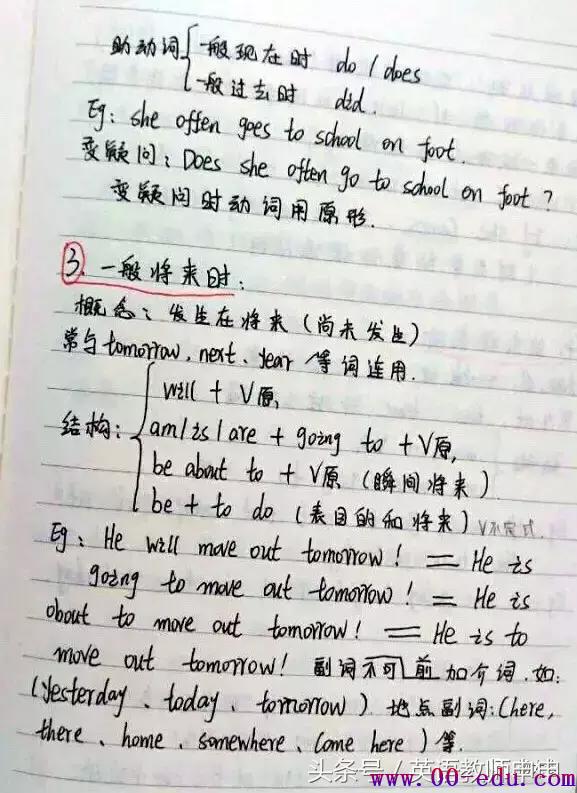 助动词{一般现在时 do / does
一般过去时 did.
Eg: she offen goes to school on foot.
变疑问: Does she often go to school on foot ?
变疑问时动词用原形.
③. 一般将来时:
概念: 发生在将来 (尚未发生)
常与tomorrow、next、year 等词连用.
will + V原,
结构: {am/is/are + going to + V原,
be about to + V原 (瞬间将来)
be + to do (表目的和将来) V不定式.
Eg: He will move out tomorrow! = He is
going to move out tomorrow! = He is
obout to move out tomorrow! = He is to
move out tomorrow! 副词不可前加介词. 如:
(yesterday、today、tomorrow) 地点副词:(here,
there、home、somewhere、Come here) 等.
头条号 / 英语教师申申
www.00-edu.com